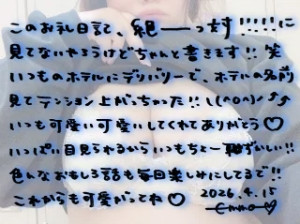 このお礼日記て、絶ーっ対!!!!!に
見てないやろうけどちゃんと書きます!! 笑
いつものホテルにデリバリーで、ホテルの名前
見てテンション上がっちゃった!! \(^o^)/⤴⤴
いつも可愛い可愛いしてくれてありがとう♡
いっぱい目見られるからいもちょー恥ずいしい!!
色んなおもしろ話も毎日楽しみにしてるで!!
これからも可愛がってね♡
2026.4.15